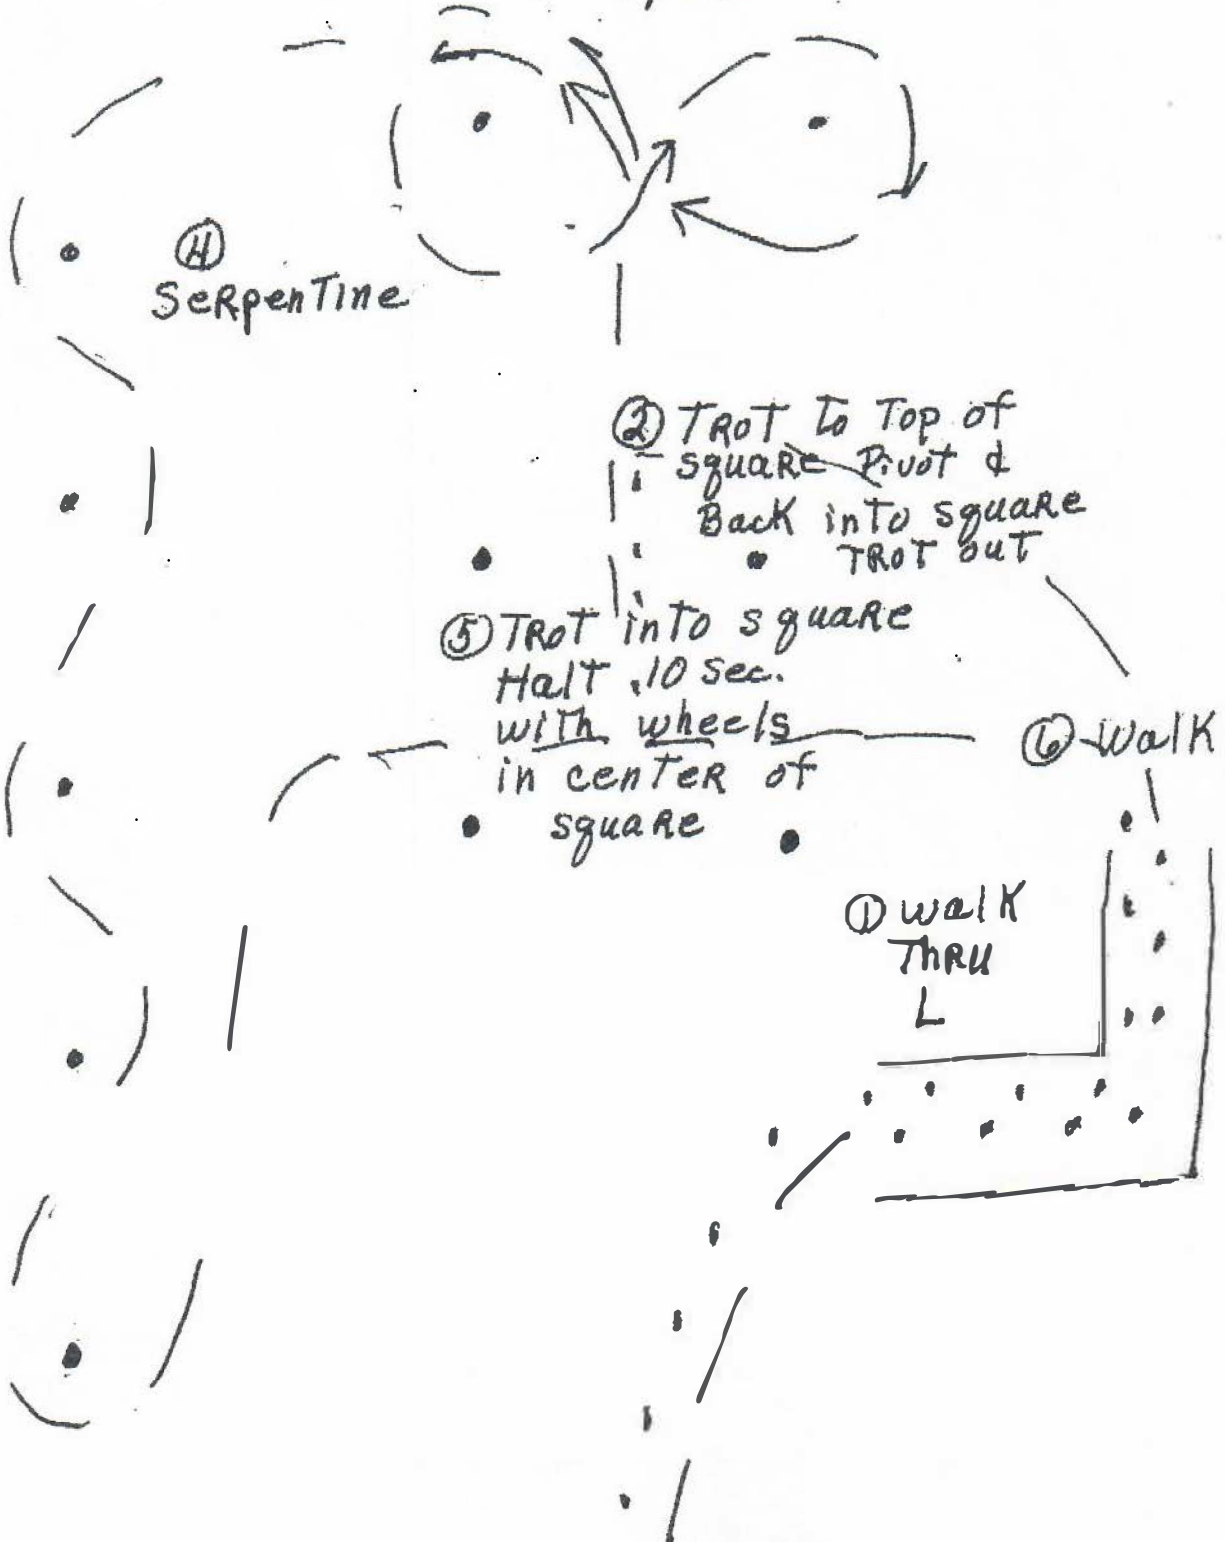 ④
SeRpenTine
② TRoT To Top of
square Pivot &
Back into square
TRoT out
⑤ TRoT into square
HalT 10 sec.
with wheels
in cenTeR of
square
⑥ Walk
① walK
ThRu
L